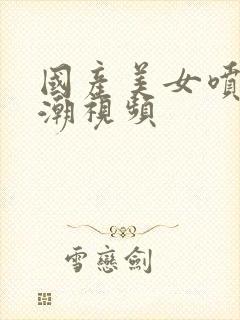 國產美女噴
潮視頻
雪戀劍